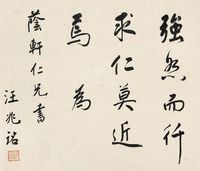 強恕而行
求仁莫近
焉 為
蔭軒仁兄書
汪兆銘